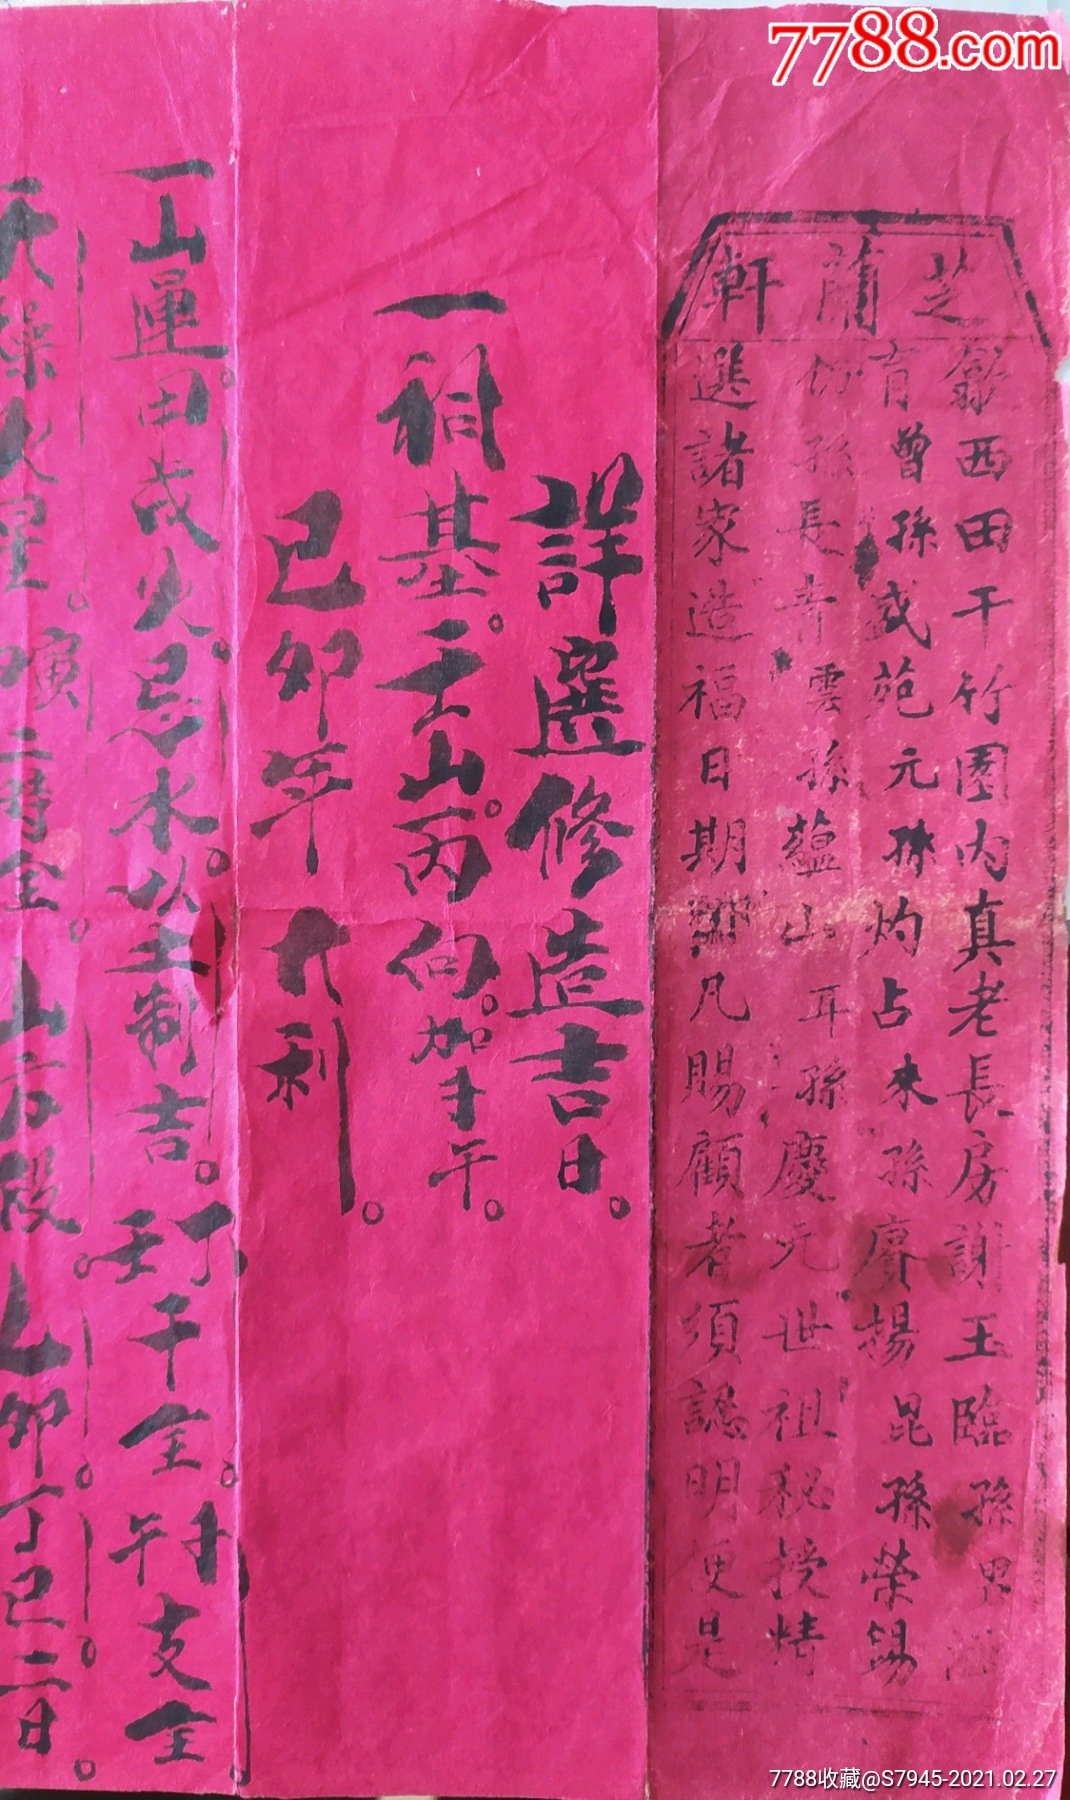 7788.com
芝蘭軒
歙西田干竹園內真老長房謝玉臨孫
育曾孫盛苑元孫灼占來孫賡揚昆孫榮錫
仍孫長青雲孫蘊山耳孫慶元世祖秘授精
選諸家造福日期凡賜顧者須認明便是
詳選修造吉日。
一祠基。壬山。丙向。加子午。
己卯年大利。
一山運甲戌火。忌水。以土制吉。丁壬干全。子午支全。
火星。二金。山方殺。己卯丁巳二日。
7788收藏@S7945-2021.02.27